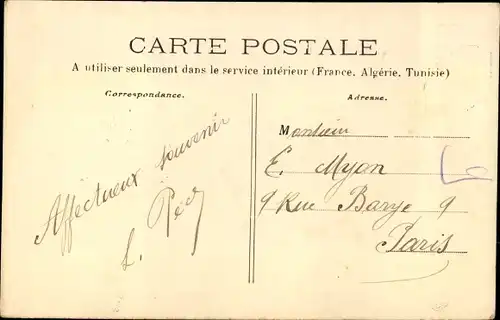 CARTE POSTALE
A utiliser seulement dans le service intérieur (France, Algérie, Tunisie)
Correspondance.
Adresse.
Affectueux souvenir
Monsieur
E. Myon
9 Rue Barye 9
Paris